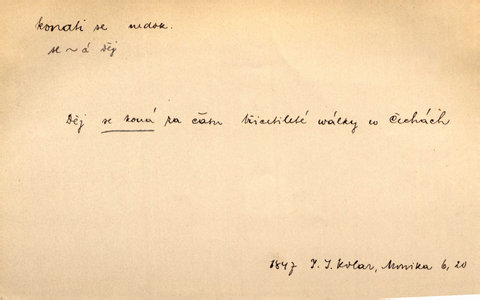 konati se nedok.
se ~ á Děj
Děj se koná za času třicetileté wálky w Čechách
1847 J. J. Kolar, Monika 6, 20